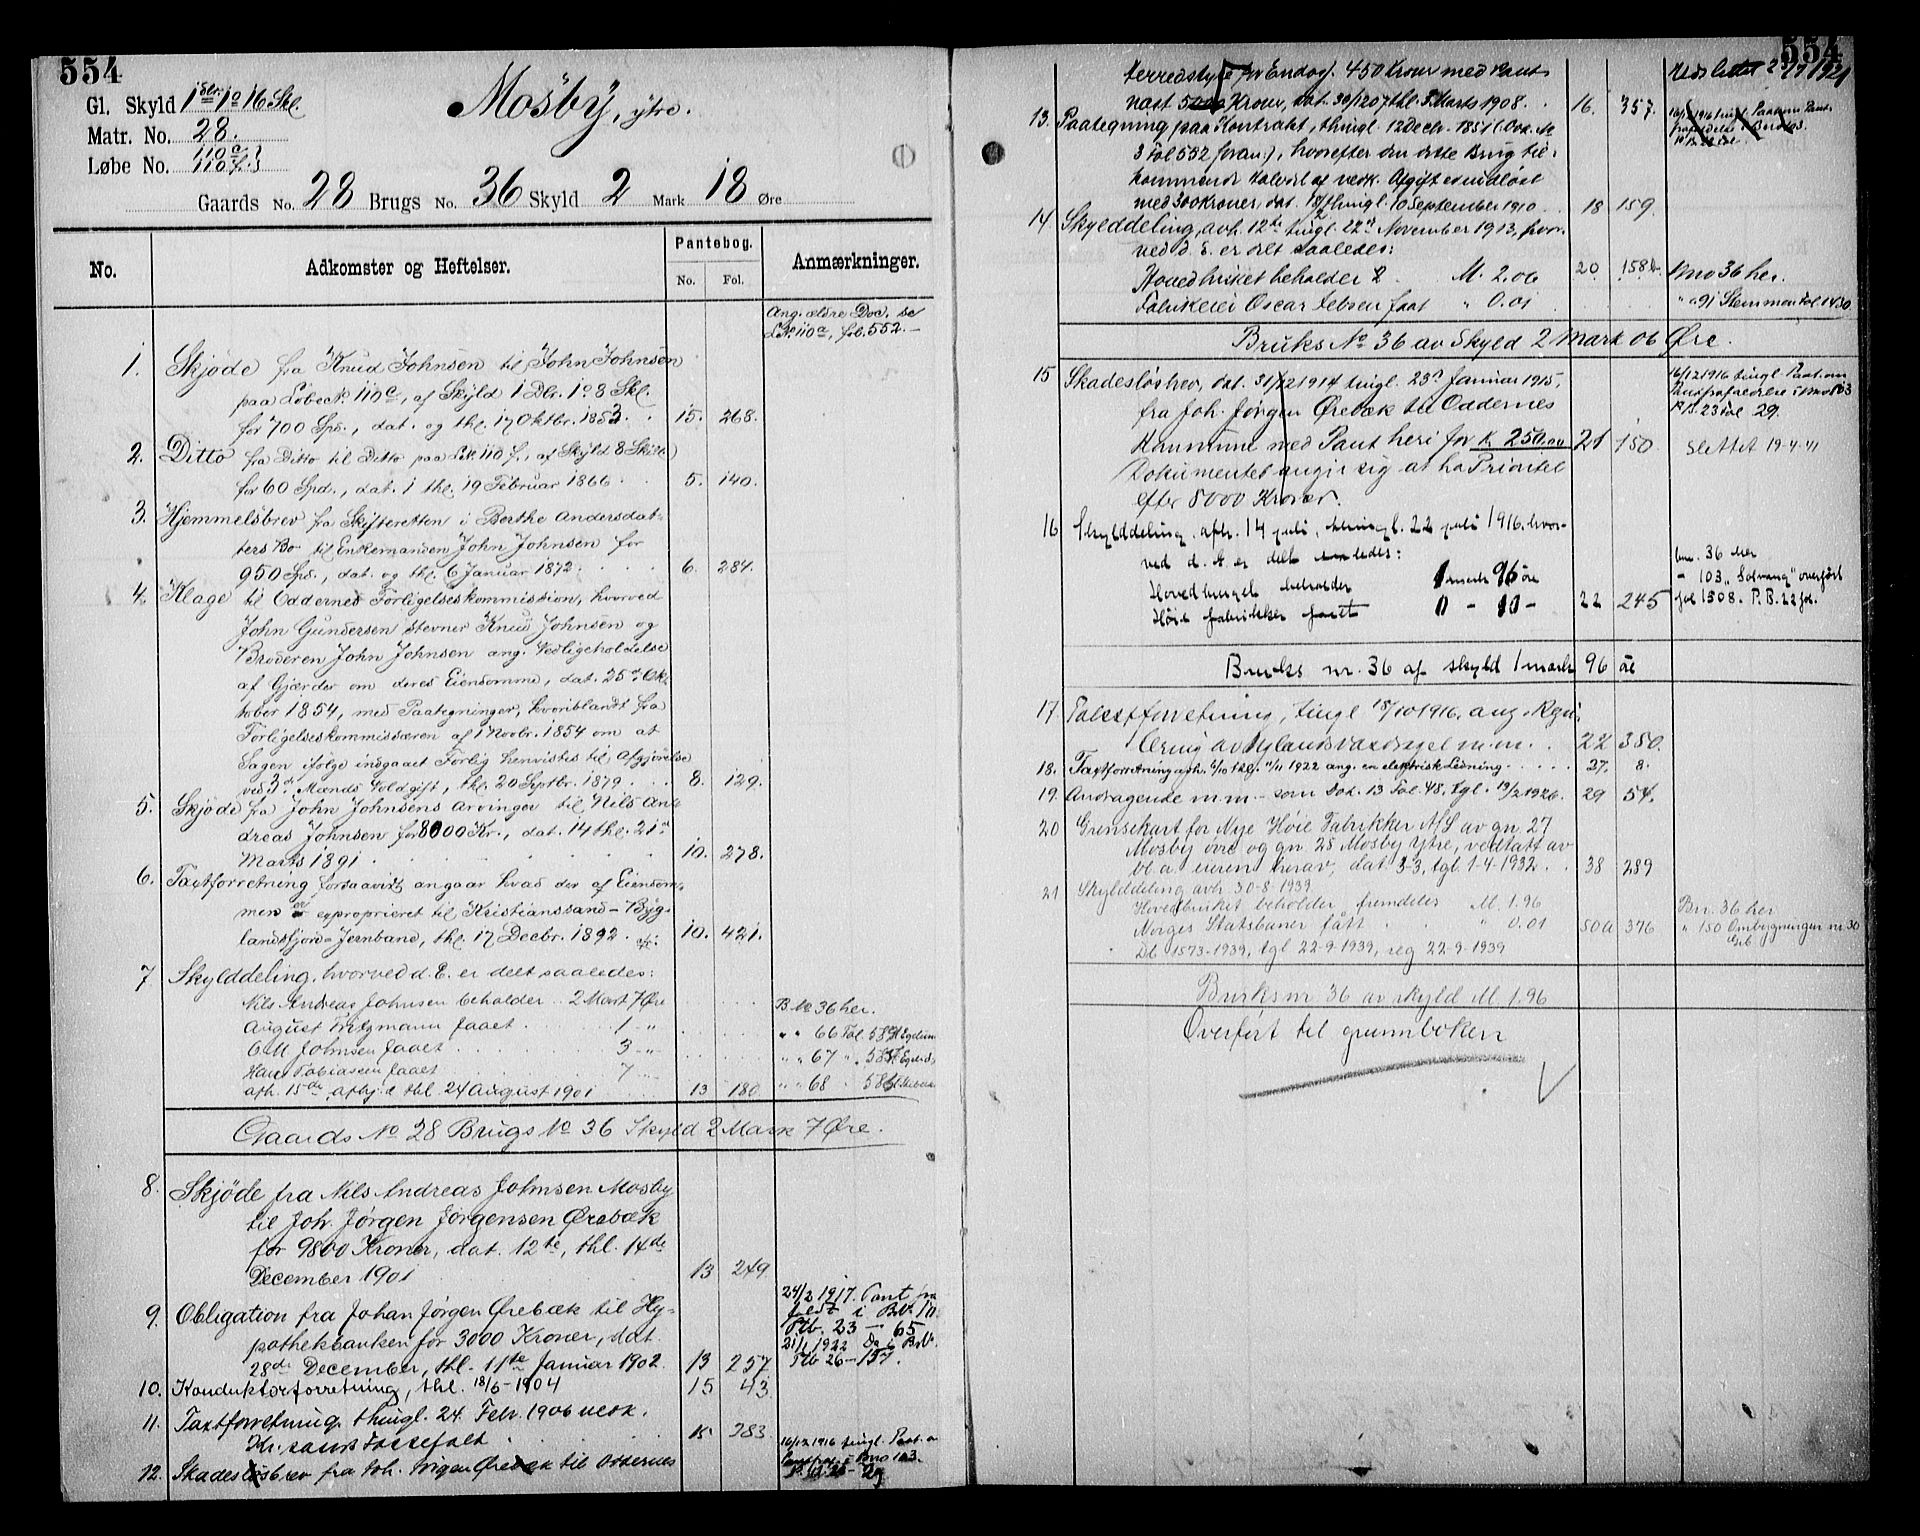 554
Gl. Skyld 1 Dlr. 1 o 16 Skl.
Matr. No. 28.
Løbe No. 110 a
110 f.
Mosby, ytre.
Gaards No. 28 Brugs No. 36 Skyld 2 Mark 18 Øre
No. Adkomster og Heftelser. Pantebog. Anmærkninger.
No. Fol.
Ang. ældre Doc. se
L.№ 110a, fol. 552.—
1. Skjøde fra Knud Johnsen til John Johnsen
paa Løbe№ 110c, af Skyld 1 Dlr. 1o 8 Skl.
for 700 Spd., dat. og thl. 17 Oktbr. 1853. 15. 268.
2. Ditto fra Ditto til Ditto paa L№ 110 f., af Skyld 8 Skill.
for 60 Spd., dat. 1 thl. 19 Februar 1866. 5. 140.
3. Hjemmelsbrev fra Skifteretten i Berthe Andersdat-
ters Bo til Enkemanden John Johnsen for
950 Spd., dat. og thl. 6 Januar 1872. 6. 284.
4. Klage til Oddernes Forligelseskommission, hvorved
John Gundersen stevner Knud Johnsen og
Broderen John Johnsen ang. Vedligeholdelse
af Gjærder om deres Eiendomme, dat. 25de Ok-
tober 1854, med Paategninger, hvoriblandt fra
Forligelseskommissæren af 1 Novbr. 1854 om at
Sagen ifølge indgaaet Forlig henvistes til Afgjørelse
ved 3de Mænds Voldgift, thl. 20 Septbr. 1879. 8. 129.
5. Skjøde fra John Johnsens Arvinger til Nils An-
dreas Johnsen for 8000 Kr., dat. 14 thl. 21de
Marts 1891 10. 278.
6. Taxtforretning forsaavidt angaar hvad der af Eiendom-
men er exproprieret til Kristianssand - Byg-
landsfjord - Jernbane, thl. 17 Decbr. 1892. 10. 421.
7 Skylddeling, hvorved d. E. er delt saaledes:
Nils Andreas Johnsen beholder 2 Mark 7 Øre B.№ 36 her.
August Fritzmann faaet 1 - „ „ „ 66 Fol. 58
O M Johnsen faaet 3 - „ „ „ 67 „ 58
Hans Tobiassen faaet 7 „ „ 68 „ 58
afh. 15de thl. 24 August 1901 13 180
Gaards № 28 Brugs № 36 Skyld 2 Mark 7 Øre.
8. Skjøde fra Nils Andreas Johnsen Mosby
til Joh. Jørgen Jørgensen Ørebæk
for 9800 Kroner, dat. 12te, thl. 14de
December 1901 13 249
9. Obligation fra Johan Jørgen Ørebæk til Hy-
pothekbanken for 3000 Kroner, dat.
28de December, thl. 11te Januar 1902. 13 257
24/2 1917. Pant fra
faldt i B№ 10
Ptb. 23 - 65
1922 Do i B№
Ptb 26 - 157.
10. Konduktørforretning, thl. 18/6 - 1904 15 43
11. Taxtforretning, thingl. 24. Febr. 1906 vedk.
Kr.sands Fossefalt 15. 383.
12. Skadesløsbrev fra Joh. Jørgen Ørebæk til Oddernes
16/12 1916 tingl. Paat. o
Bno 103.
554
Herredstyre for Endog. 450 Kroner med Pant
næst 5000 Kroner, dat. 30/12 07 thl. 5 Marts 1908. 16. 357.
13. Paategning paa Kontrakt, thingl. 12 Decbr. 1851 (Dok. №
3 Fol 552 foran), hvorefter den dette Brug til-
kommende Halvdel af vedk. Afgift er indløst
med 300 Kroner, dat. thingl. 10 September 1910 18 159.
14. Skylddeling, avh. 12te tingl. 22de November 1913, hvor-
ved d. E. er delt saaledes:
Hovedbruket beholder M. 2.06 20. 158 b. Bno 36 her.
Fabrikeier Oscar Jebsen faat „ 0.01 „ 91 Stemmen Fol 1430
Bruks № 36 av Skyld 2 Mark 06 Øre.
15 Skadesløsbrev, dat. 31/12 1914 tingl. 23de Januar 1915,
fra Joh. Jørgen Ørebæk til Oddernes
Kommune med Pant heri for Kr. 250.00 21 150 Slettet 19-4-41
Dokumentet angir sig at ha Prioritet
efter 8000 Kroner.
16/12 1916 tingl. Paat. om
Pantefrafaldelse i Bno 103
P.B. 23 Fol 29.
16 Skylddeling, afh. 14 juli, thingl. 22 juli 1916, hvor-
ved d. E. er delt saaledes:
Hovedbruget beholder 1 mark 96 øre bno. 36 her
Höie fabrikker faaet 0 - 10 - 22 245 - 103 „Solvang" overført
fol 1508. P.B. 22 fol.
Bruks nr. 36 af skyld 1 mark 96 öre
17 Takstforretning, tingl 18/10 1916, ang. Regu-
lering av m.m. 22 380.
18. Taxtforretning afh. 6/10 thl. 11/11 1922 ang. en elektrisk Ledning 27. 8.
19. Andragende m.m. - som Dok. 13 Fol. 48, tgl. 19/2 1926. 29 54.
20 Grensekart for Nye Høie Fabrikker A/S av gn. 27
Mosby øvre og gn. 28 Mosby Ytre, vedtatt av
bl.a. eieren herav, dat. 3-3, tgl. 1-4-1932. 38 289
21 Skylddeling avh 30-8-1939
Hovedbruket beholder fremdeles M. 1.96 Bnr. 36 her
Norges Statsbaner fått „ 0.01 50a 376 „ 150 Ombygningen nr. 30
Db 1573-1939, tgl 22-9-1939, reg 22-9-1939
Bruks nr 36 av skyld M. 1.96
Overført til grunnboken